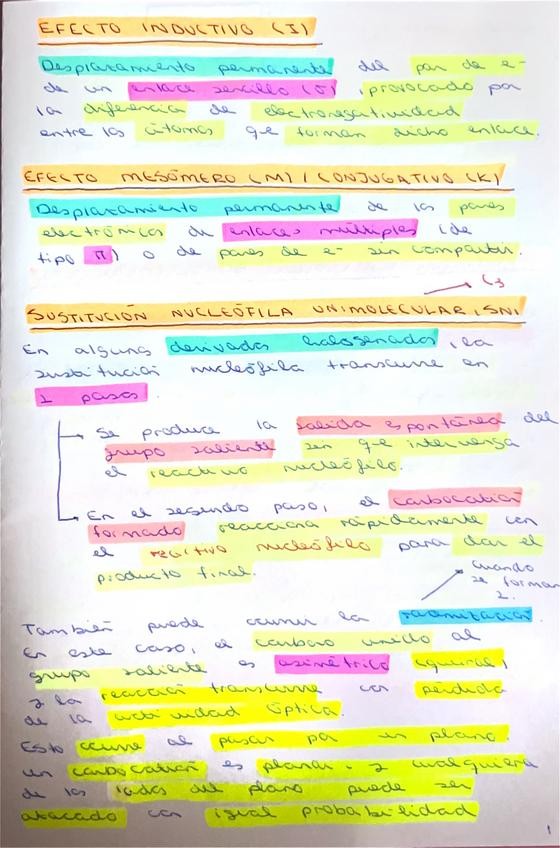 EFECTO INDUCTIVO (I)
Desplazamiento permanente del par de e-
de un enlace sencillo (σ), provocado por
la diferencia de electronegatividad
entre los átomos que forman dicho enlace.
EFECTO MESÓMERO (M) / CONJUGATIVO (K)
Desplazamiento permanente de los pares
electrónicos de enlaces múltiples (de
tipo π) o de pares de e- sin compartir.
C3
SUSTITUCIÓN NUCLEÓFILA UNIMOLECULAR (SN1
En algunos derivados halogenados, la
sustitución nucleófila transcurre en
2 pasos.
Se produce la salida espontánea del
grupo saliente sin que intervenga
el reactivo nucleófilo.
En el segundo paso, el carbocatión
formado reacciona rápidamente con
el reactivo nucleófilo para dar el
producto final.
Cuando
se forman
2.
También puede ocurrir la racemización.
En este caso, el carbono unido al
grupo saliente es asimétrico (quiral)
y la reacción transcurre con pérdida
de la actividad óptica.
Esto ocurre al pasar por un plano.
un carbocatión es planar. y cualquiera
de los lados del plano puede ser
atacado con igual probabilidad
1